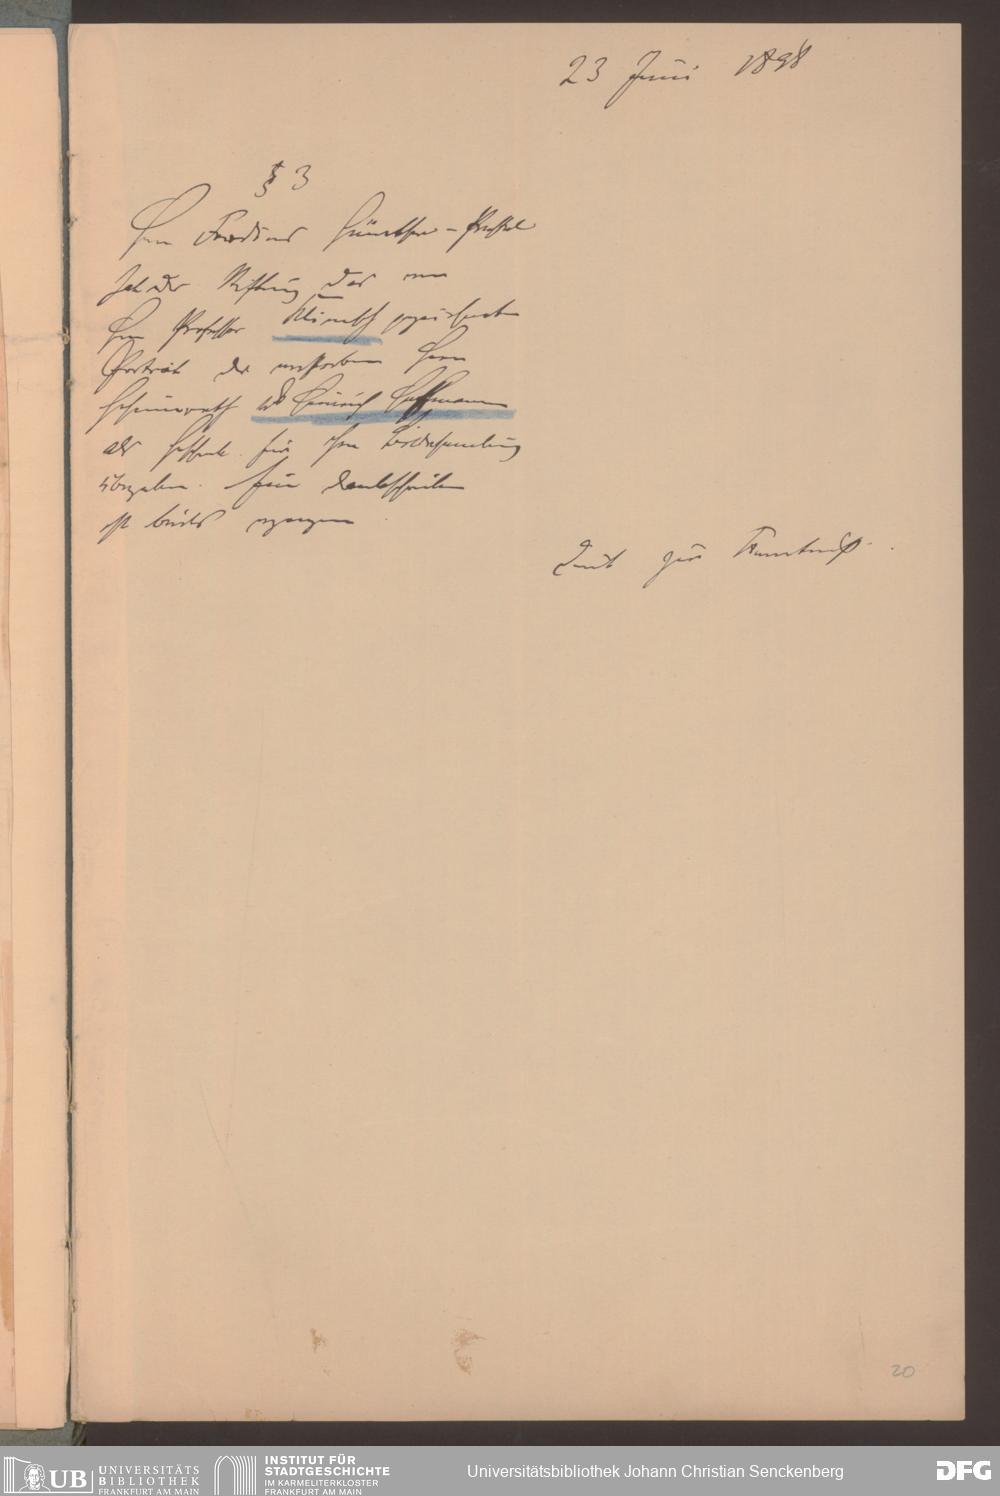 23 Juni 1898
§ 3
Herr Günther-Prestel
hat der Stiftung das von
Herrn Professor Klimsch gezeichnete
Porträt des verstorbenen Herrn
Geheimrath Dr Heinrich Hoffmann
als Geschenk für ihre Bildersammlung
übergeben. Ein Dankschreiben
ist bereits ergangen
Dient zur Kenntniß.
20
UB UNIVERSITÄTS
BIBLIOTHEK
FRANKFURT AM MAIN
INSTITUT FÜR
STADTGESCHICHTE
IM KARMELITERKLOSTER
FRANKFURT AM MAIN
Universitätsbibliothek Johann Christian Senckenberg
DFG